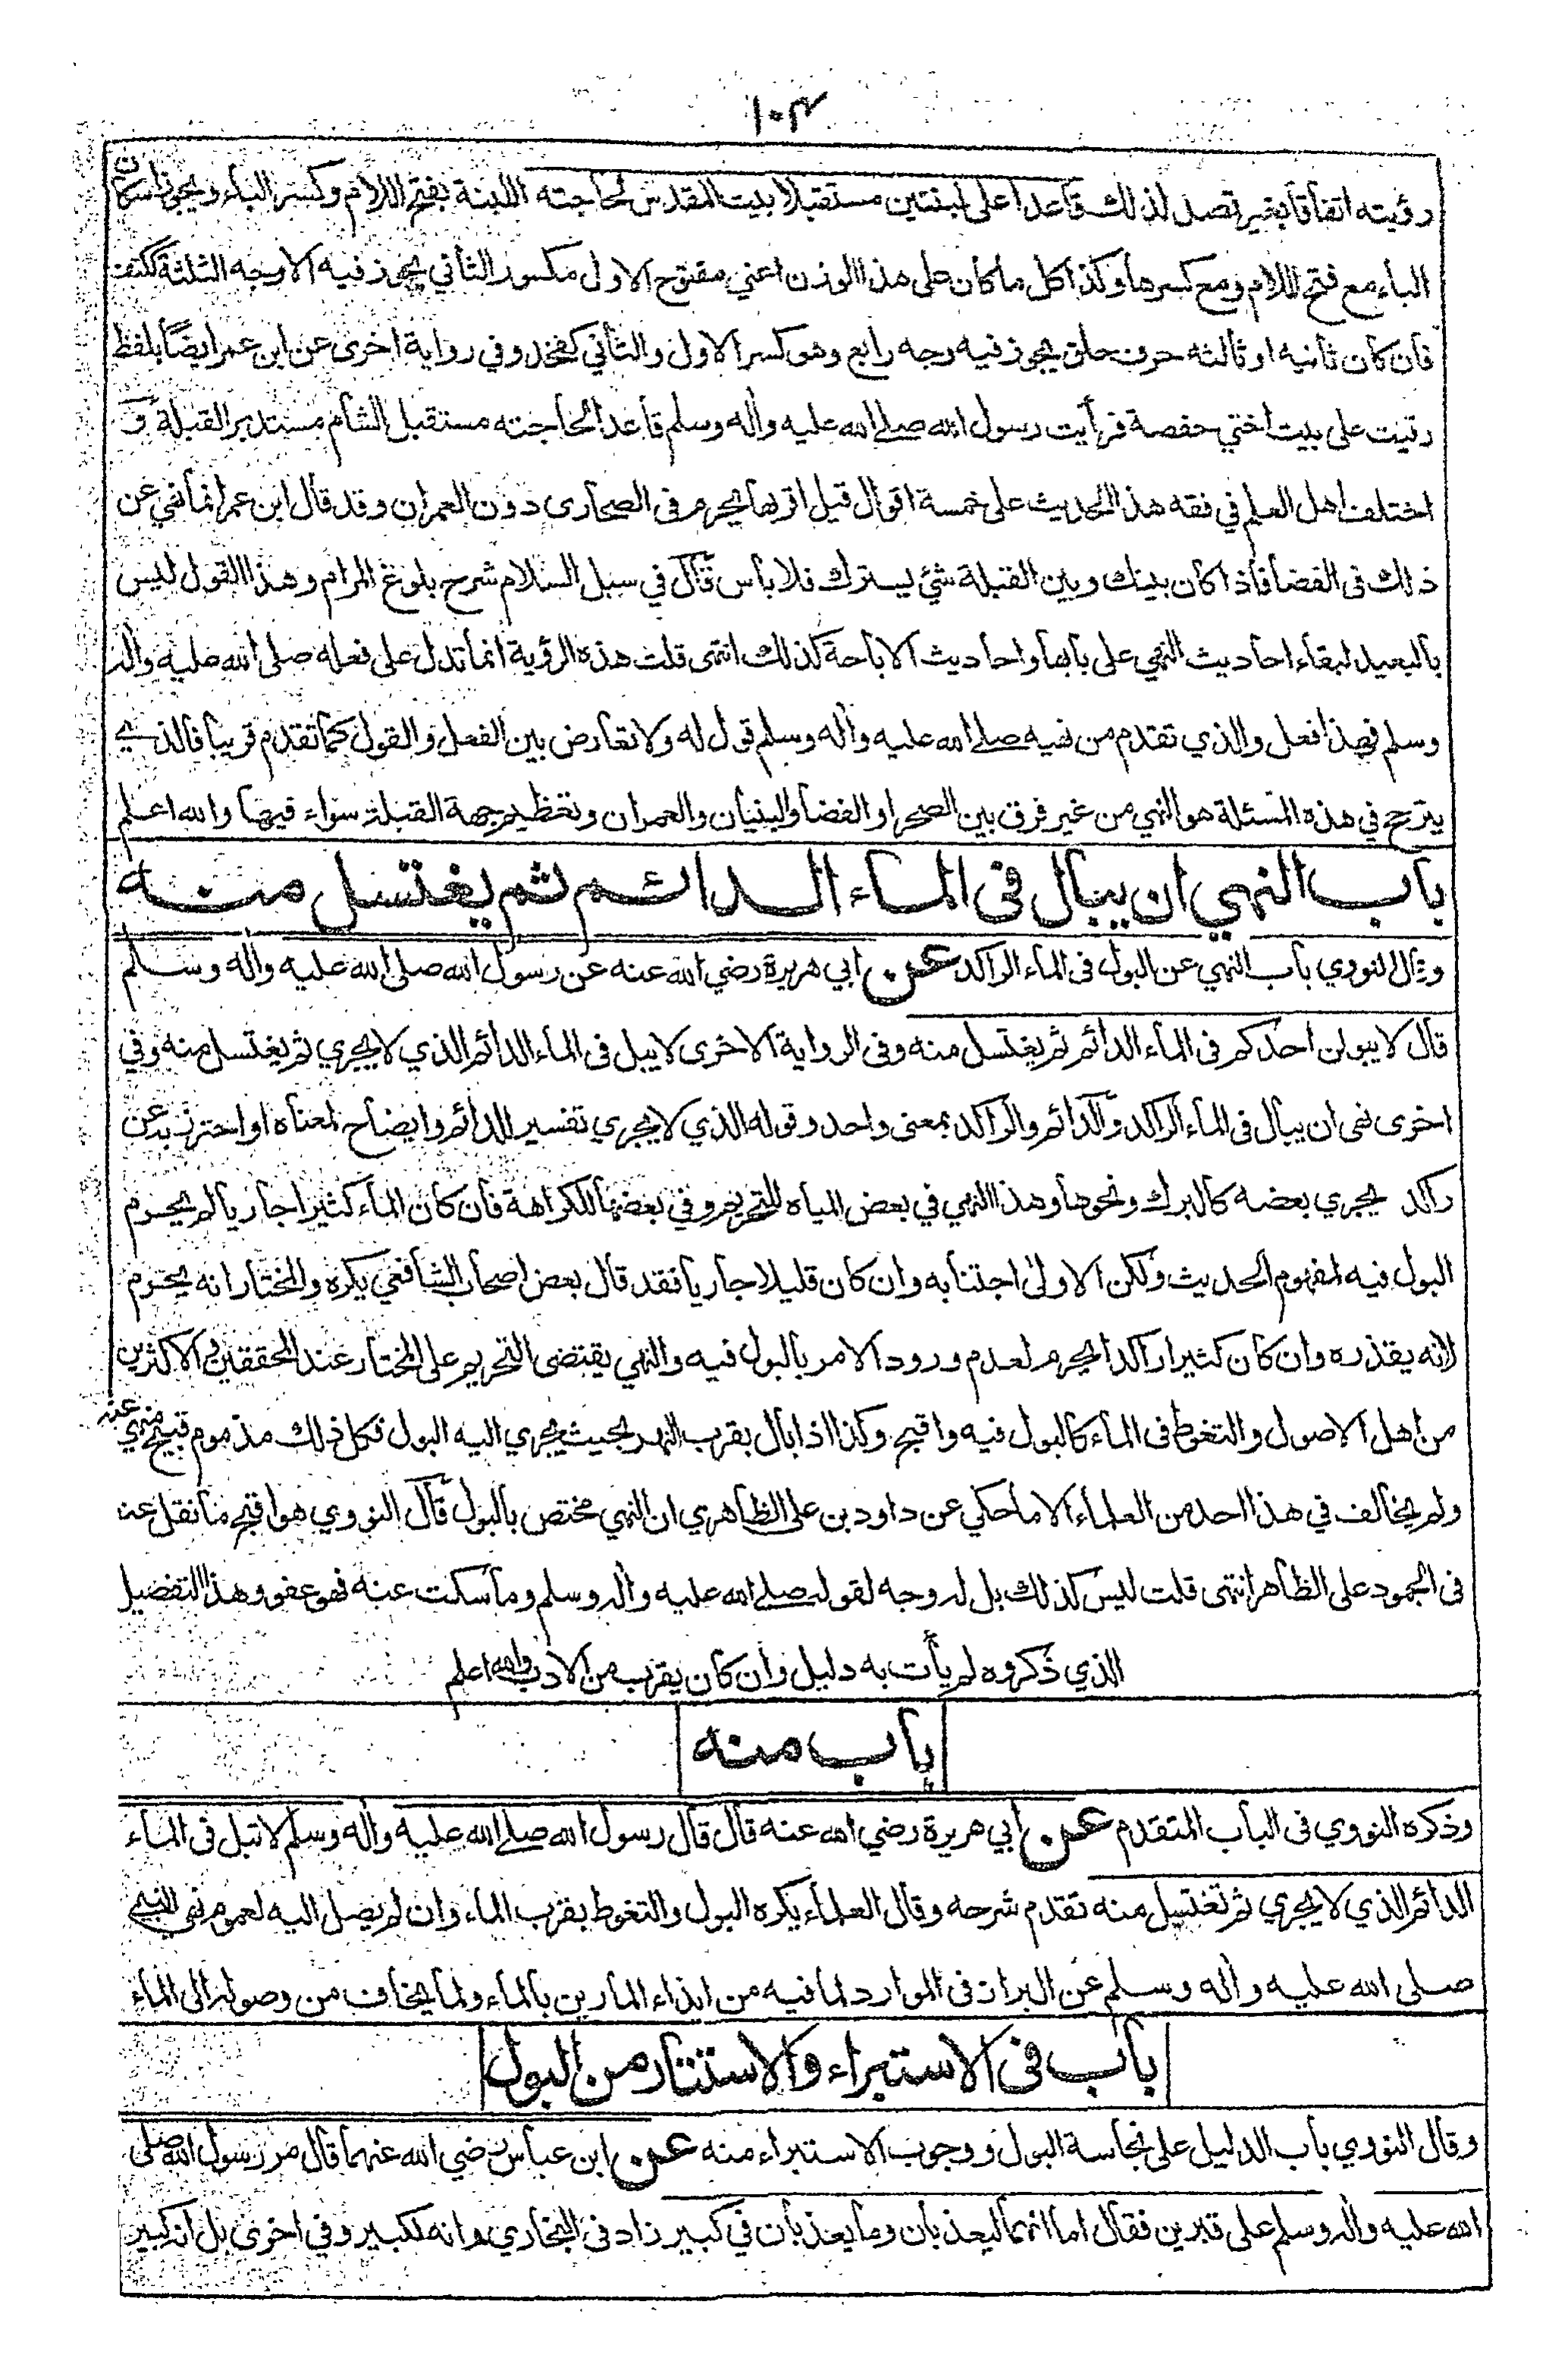 ١٠٣
رؤيته اتفاقا بغير قصد لذلك قاعدا على لبنتين مستقبلا بيت المقدس لحاجته اللبنة بفتح اللام وكسر الباء ويجوز اسكان
الباء مع فتح اللام ومع كسرها وكذا كل ما كان على هذا الوزن اعني مفتوح الاول مكسور الثاني يجوز فيه الاوجه الثلثة ككتف
فان كان ثانيه او ثالثه حرف حلق يجوز فيه وجه رابع وهو كسر الاول والثاني كفخذ وفي رواية اخرى عن ابن عمر ايضًا بلفظ
رقيت على بيت اختي حفصة فرأيت رسول الله صلى الله عليه وأله وسلم قاعدا لحاجته مستقبل الشام مستدبر القبلة و
اختلف اهل العلم في فقه هذا الحديث على خمسة اقوال قيل اقربها يحرم في الصحارى دون العمران وقد قال ابن عمر انما نهي عن
ذلك في الفضا فاذا كان بينك وبين القبلة شئ يسترك فلا باس قال في سبل السلام شرح بلوغ المرام وهذا القول ليس
بالبعيد لبقاء احاديث النهي على بابها واحاديث الاباحة كذلك انتهى قلت هذه الرؤية انما تدل على فعله صلى الله عليه واله
وسلم فهذا فعل والذي تقدم من نهيه صلى الله عليه وأله وسلم قول له ولا تعارض بين الفعل والقول كما تقدم قريبا فالذي
يترجح في هذه المسئلة هو النهي من غير فرق بين الصحرا والفضا والبنيان والعمران وتعظيم جهة القبلة سواء فيها والله اعلم
باب النهي ان يبال في الماء الدائم ثم يغتسل منه
وقال النووي باب النهي عن البول في الماء الراكد عن ابي هريرة رضي الله عنه عن رسول الله صلى الله عليه وأله وسلم
قال لا يبولن احدكم في الماء الدائم ثم يغتسل منه وفي الرواية الاخرى لا يبل في الماء الدائم الذي لا يجري ثم يغتسل منه وفي
اخرى نهى ان يبال في الماء الراكد والدائم والراكد بمعنى واحد وقوله الذي لا يجري تفسير للدائم وايضاح لمعناه او احترز به عن
راكد يجري بعضه كالبرك ونحوها وهذا النهي في بعض المياه للتحريم وفي بعضها للكراهة فان كان الماء كثيرا جاريا لم يحرم
البول فيه لمفهوم الحديث ولكن الاولى اجتنابه وان كان قليلا جاريا فقد قال بعض اصحاب الشافعي يكره والمختار انه يحرم
لانه يقذره وان كان كثيرا راكدا يحرم لعدم ورود الامر بالبول فيه والنهي يقتضى التحريم على المختار عند المحققين والاكثرين
من اهل الاصول والتغوط في الماء كالبول فيه واقبح وكذا اذا بال بقرب النهر بحيث يجري اليه البول فكل ذلك مذموم قبيح منهي عنه
ولم يخالف في هذا احد من العلماء الا ما حكي عن داود بن علي الظاهري ان النهي مختص بالبول قال النووي هو اقبح ما نقل عنه
في الجمود على الظاهر انتهى قلت ليس كذلك بل له وجه لقوله صلى الله عليه واله وسلم وما سكت عنه فهو عفو وهذا التفضيل
الذي ذكروه لم يأت به دليل وان كان يقرب من الادب والله اعلم
باب منه
وذكره النووي في الباب المتقدم عن أبي هريرة رضي الله عنه قال قال رسول الله صلى الله عليه واله وسلم لا تبل في الماء
الدائم الذي لا يجري ثم تغتسل منه تقدم شرحه وقال العلماء يكره البول والتغوط بقرب الماء وان لم يصل اليه لعموم نهي النبي
صلى الله عليه وأله وسلم عن البراز في الموارد لما فيه من ايذاء المارين بالماء ولما يخاف من وصوله الى الماء
باب في الاستبراء والاستتار من البول
وقال النووي باب الدليل على نجاسة البول ووجوب الاستبراء منه عن ابن عباس رضي الله عنهما قال مر رسول الله صلى
الله عليه واله وسلم على قبرين فقال اما انهما ليعذبان وما يعذبان في كبير زاد في البخاري وانه لكبير وفي اخرى بل انه كبير